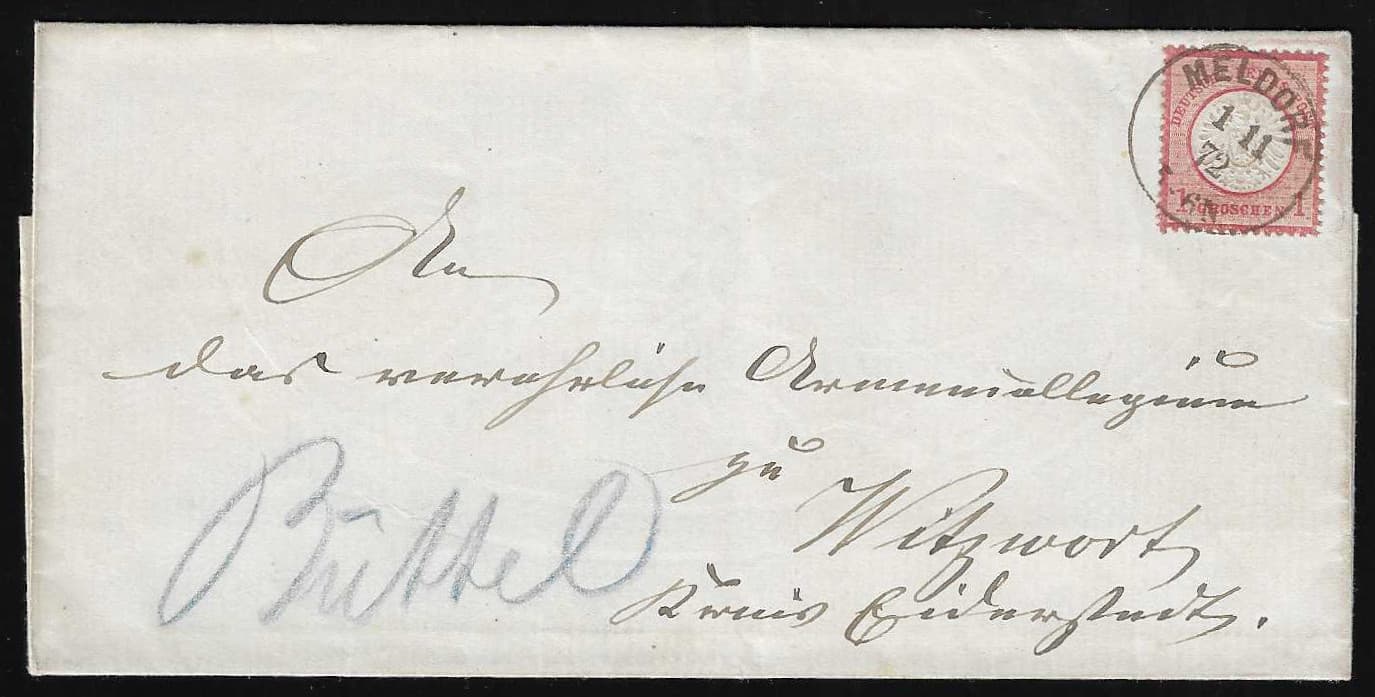 MELDORF
1 11
72
6N
DEUTSCHE REICHS-POST
1 GROSCHEN 1
An
das verehrliche Armencollegium
zu
Witzwort
Kreis Eiderstedt.
Büttel